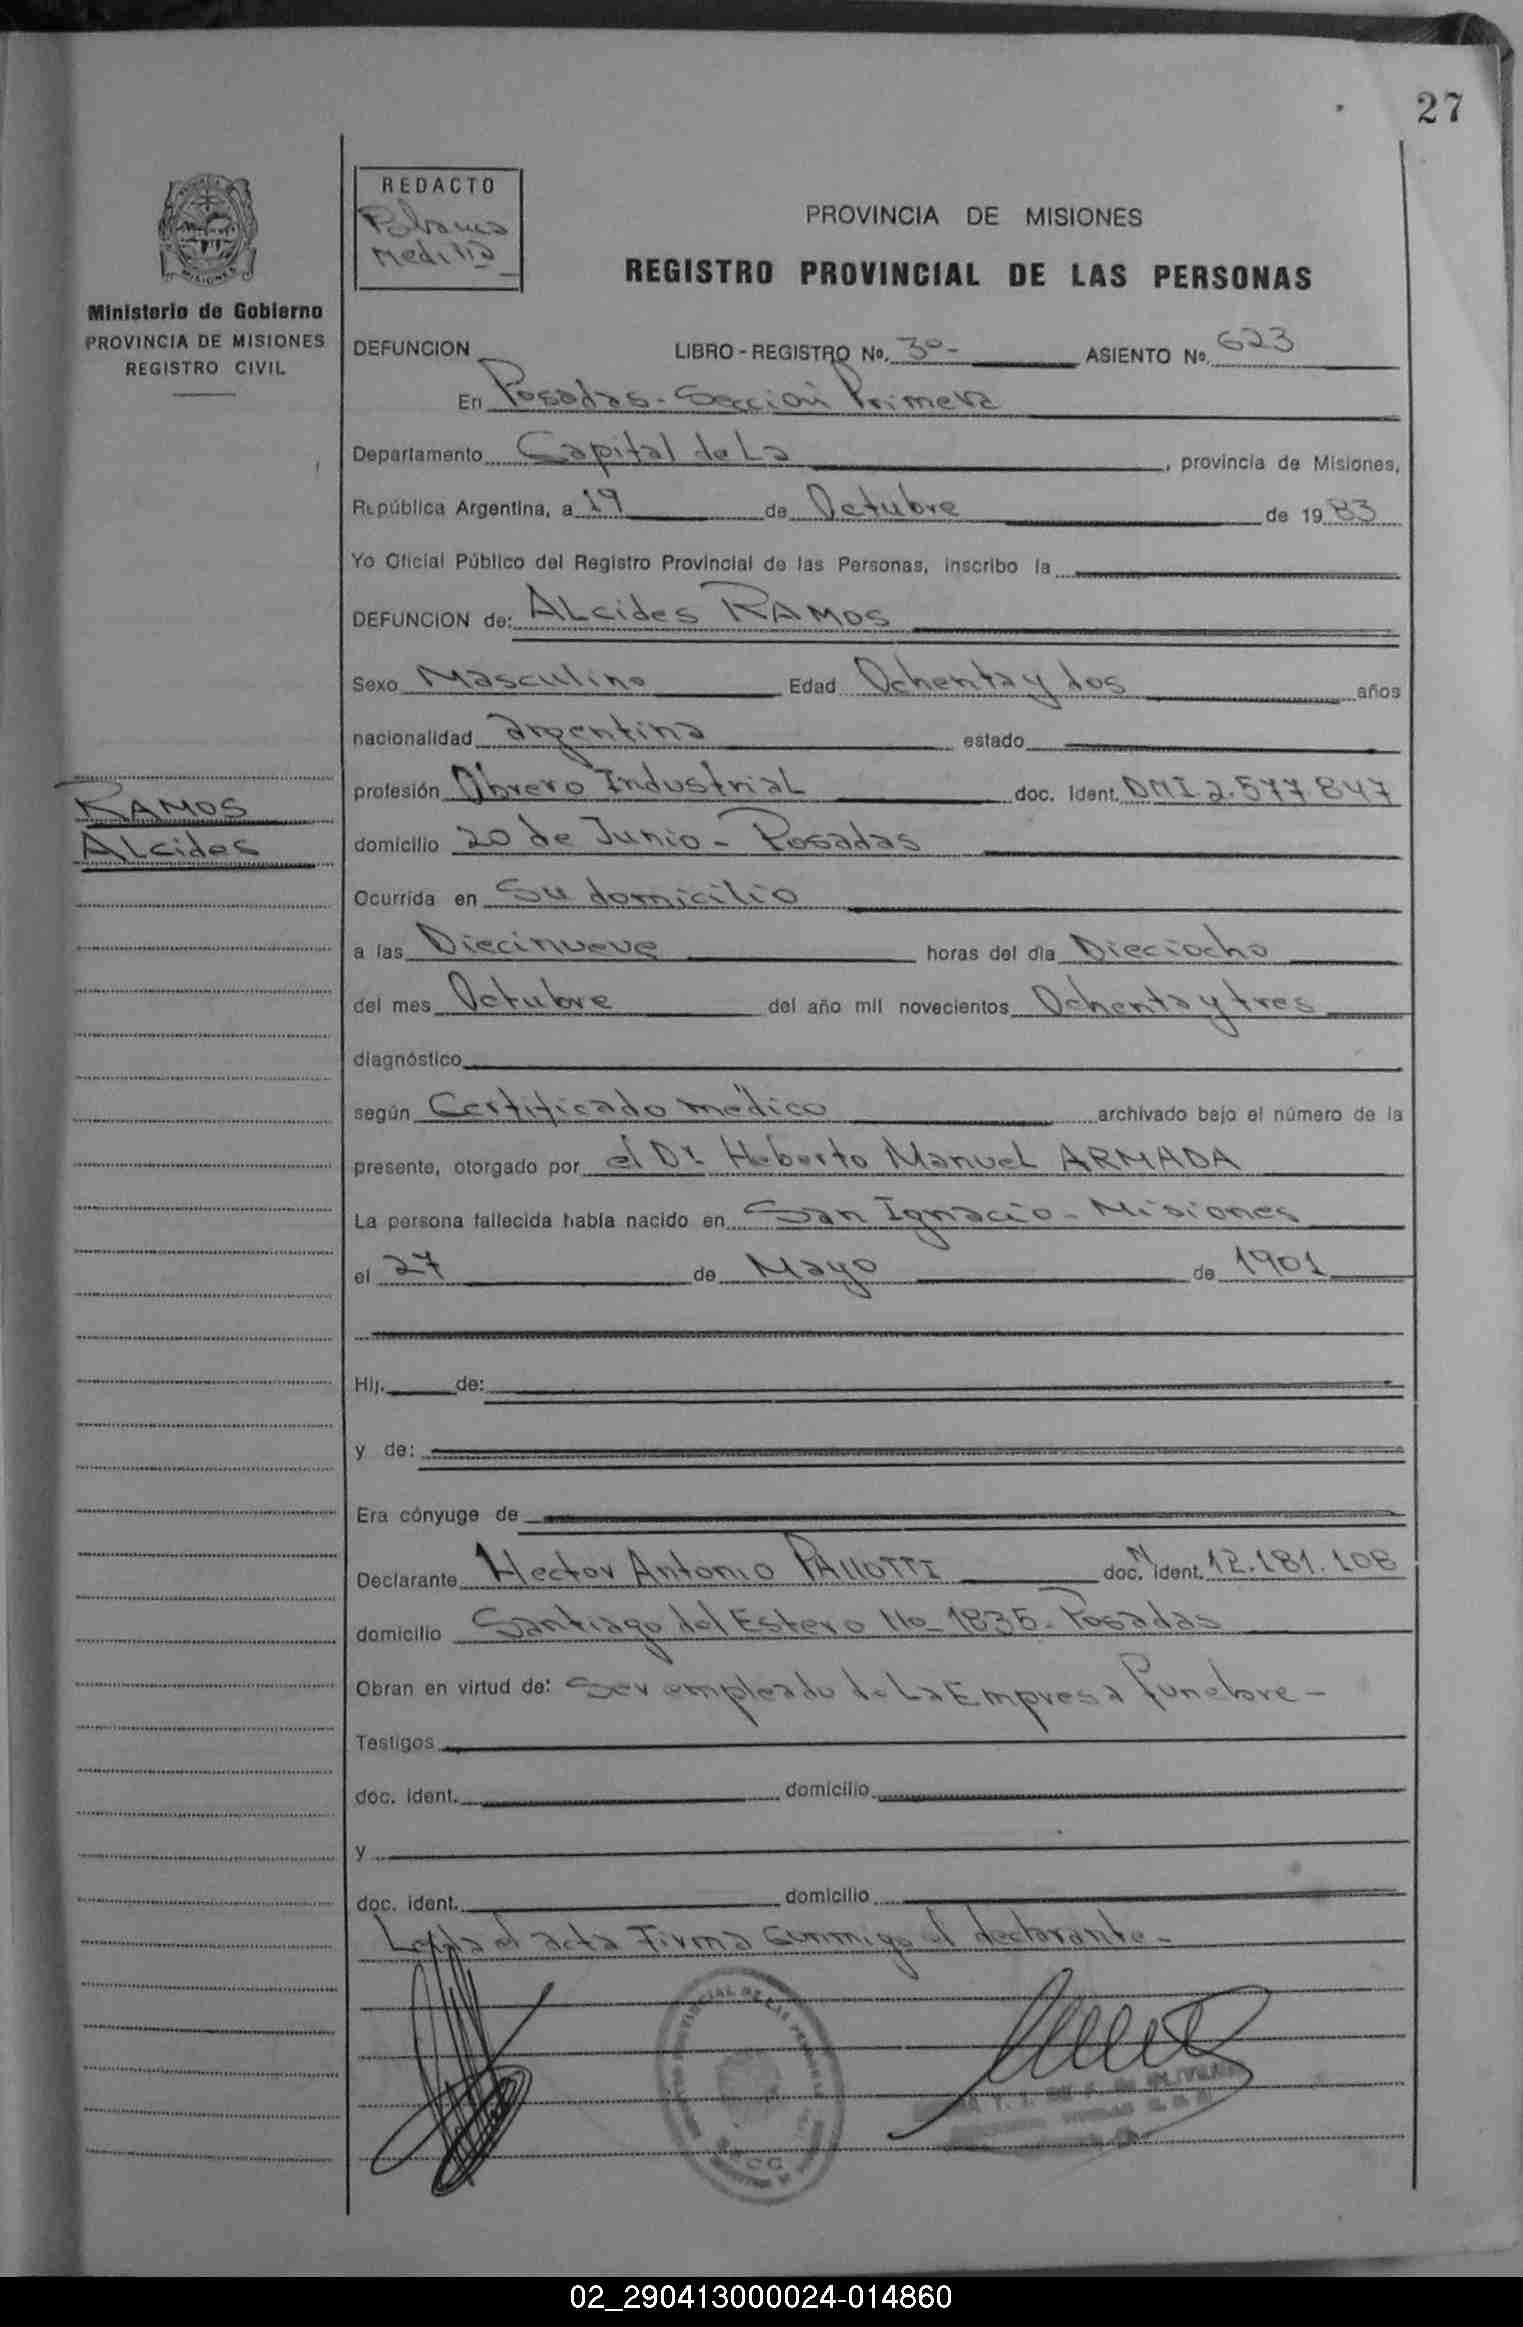 27
REDACTO
PROVINCIA DE MISIONES
REGISTRO PROVINCIAL DE LAS PERSONAS
MISIONES
Ministerio de Gobierno
PROVINCIA DE MISIONES
REGISTRO CIVIL
DEFUNCION LIBRO-REGISTRO No. 3º- ASIENTO No. 623
En Posadas-Sección Primera
Departamento Capital de La, provincia de Misiones,
República Argentina, a 19 de Octubre de 1983
Yo Oficial Público del Registro Provincial de las Personas, inscribo la
DEFUNCION de: ALcides RAMOS
Sexo Masculino Edad Ochenta y dos años
nacionalidad argentina estado
profesión Obrero Industrial doc. Ident. DNI 2.577.847
RAMOS
Alcides
domicilio 20 de Junio - Posadas
Ocurrida en Su domicilio
a las Diecinueve horas del día Dieciocho
del mes Octubre del año mil novecientos Ochenta y tres
diagnóstico
según Certificado médico archivado bajo el número de la
presente, otorgado por el Dr. Heberto Manuel ARMADA
La persona fallecida había nacido en San Ignacio - Misiones
el 27 de Mayo de 1901
Hij. de:
y de:
Era cónyuge de
Declarante Hector Antonio doc. ident. 12.181.108
domicilio Santiago del Estero No 1835-Posadas
Obran en virtud de: Ser empleado de La Empresa funebre-
Testigos
doc. ident. domicilio
y
doc. ident. domicilio
Leida el acta Firma conmigo el declarante-
02_290413000024-014860